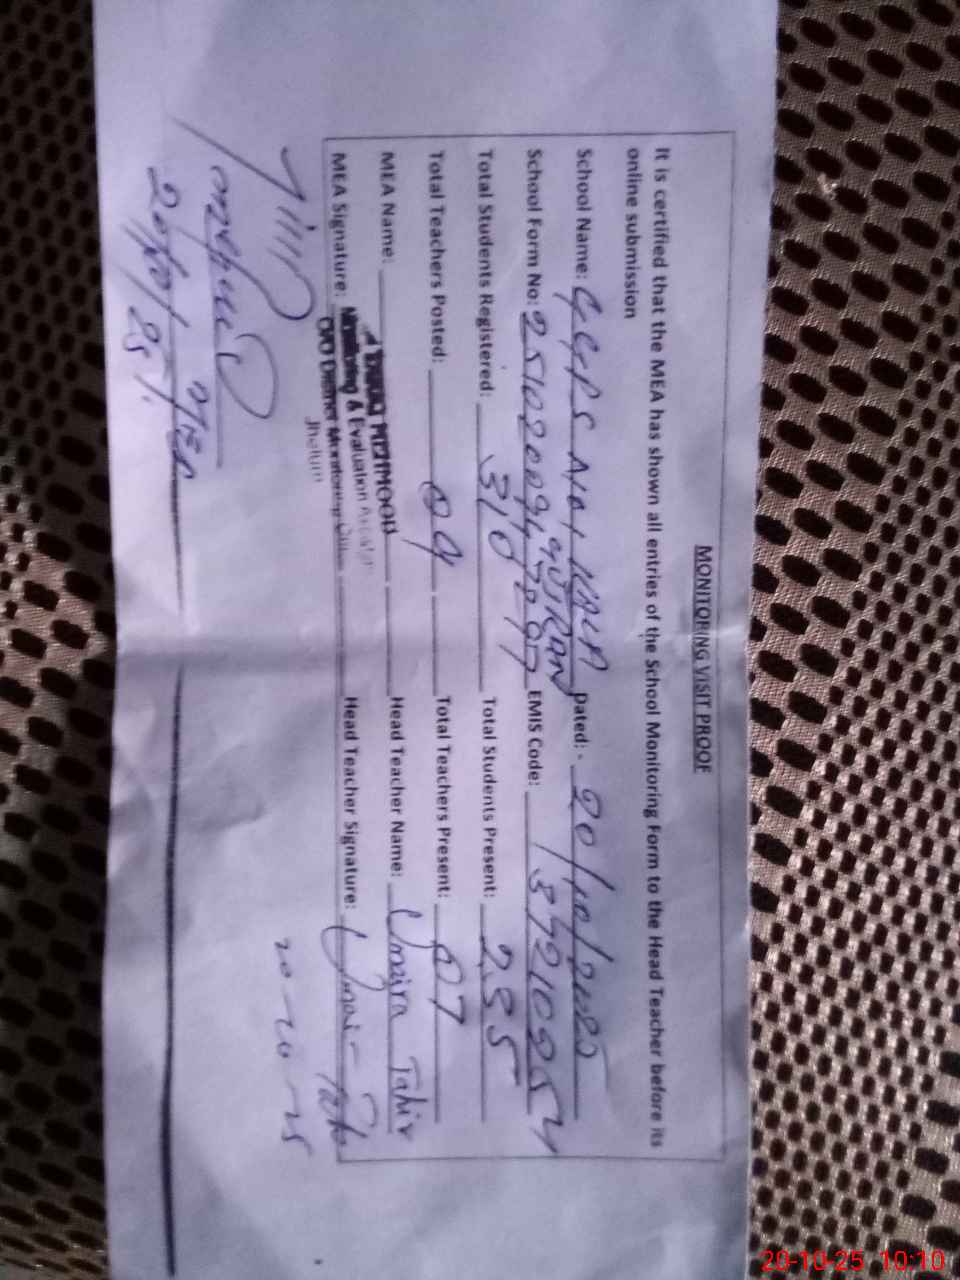 MONITORING VISIT PROOF
It is certified that the MEA has shown all entries of the School Monitoring Form to the Head Teacher before its
online submission
School Name: Dated: - 20/10/2025
School Form No: EMIS Code:
Total Students Registered: 310 Total Students Present: 235
Total Teachers Posted: 09 Total Teachers Present: 07
MEA Name: MEHMOOD Head Teacher Name: Umaira Tahir
MEA Signature: Monitoring & Evaluation Head Teacher Signature:
O/O District Monitoring
Jhelum
MEA
20/10/25
20-10-25
20-10-25 10:10